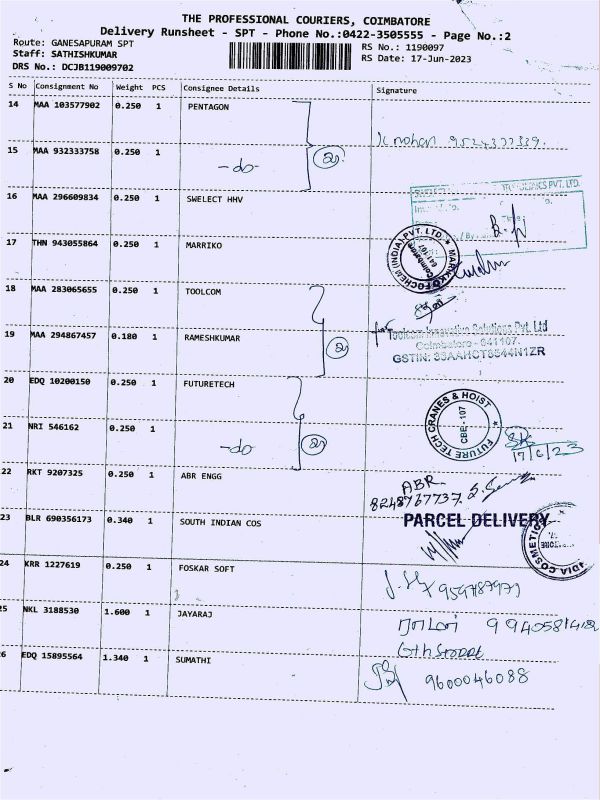 THE PROFESSIONAL COURIERS, COIMBATORE
Delivery Runsheet - SPT - Phone No.:0422-3505555 - Page No.:2
Route: GANESAPURAM SPT
Staff: SATHISHKUMAR
DRS No.: DCJB119009702
RS No.: 1190097
RS Date: 17-Jun-2023
S No Consignment No Weight PCS Consignee Details Signature
14 MAA 103577902 0.250 1 PENTAGON
K mohan 9524377339.
15 MAA 932333758 0.250 1 -do- 2
16 MAA 296609834 0.250 1 SWELECT HHV
PVT. LTD.
17 THN 943055864 0.250 1 MARRIKO
(INDIA) PVT. LTD.
Coimbatore
641107
18 MAA 283065655 0.250 1 TOOLCOM
19 MAA 294867457 0.180 1 RAMESHKUMAR 2
for Toolcom Innovative Solutions Pvt. Ltd
Coimbatore - 641107.
GSTIN: 33AAHCT8544N1ZR
20 EDQ 10200150 0.250 1 FUTURETECH
FUTURE TECH CRANES & HOIST
CBE - 107
21 NRI 546162 0.250 1 -do- 2
17/6/23
22 RKT 9207325 0.250 1 ABR ENGG
ABR
8248767737
23 BLR 690356173 0.340 1 SOUTH INDIAN COS
PARCEL DELIVERY
24 KRR 1227619 0.250 1 FOSKAR SOFT
25 NKL 3188530 1.600 1 JAYARAJ
6th Street
26 EDQ 15895564 1.340 1 SUMATHI
9600046088